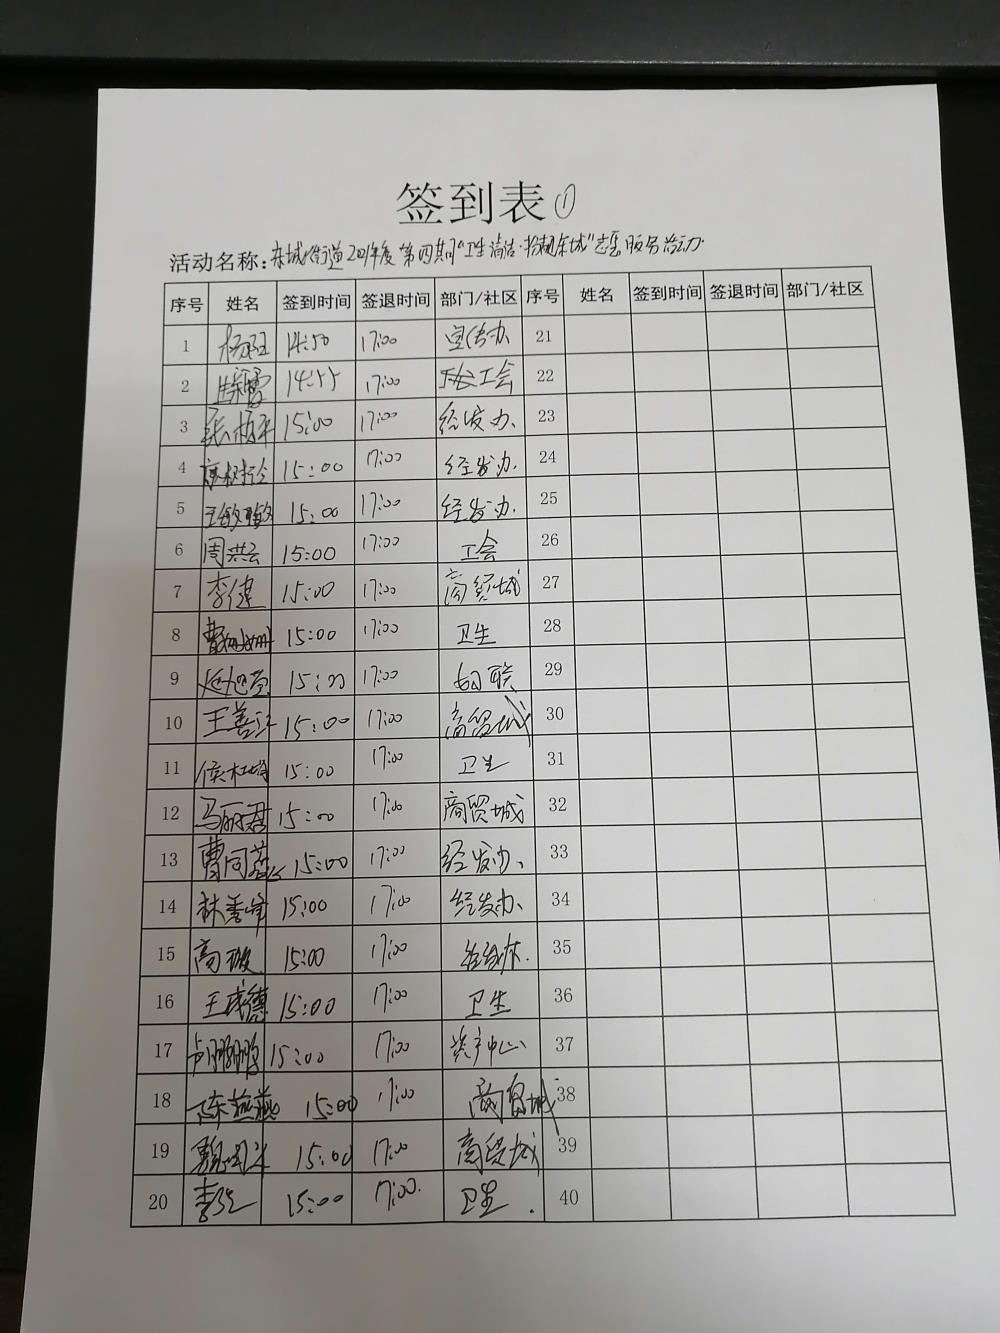 签到表①
活动名称：东城街道2021年度第四期"卫生清洁·扮靓东城"志愿服务活动
序号 姓名 签到时间 签退时间 部门/社区 序号 姓名 签到时间 签退时间 部门/社区
1 14:50 17:00 宣传办 21
2 14:55 17:00 工会 22
3 15:00 17:00 经发办 23
4 15:00 17:00 经发办 24
5 王敏敏 15:00 17:00 经发办 25
6 周洪云 15:00 17:00 工会 26
7 李健 15:00 17:00 商贸城 27
8 曹姗姗 15:00 17:00 卫生 28
9 15:00 17:00 妇联 29
10 王善江 15:00 17:00 商贸城 30
11 15:00 17:00 卫生 31
12 马丽君 15:00 17:00 商贸城 32
13 曹同磊 15:00 17:00 经发办 33
14 林善峰 15:00 17:00 经发办 34
15 15:00 17:00 35
16 王成德 15:00 17:00 卫生 36
17 卢鹏鹏 15:00 17:00 共产中心 37
18 陈燕燕 15:00 17:00 商贸城 38
19 15:00 17:00 商贸城 39
20 15:00 17:00 卫生 40